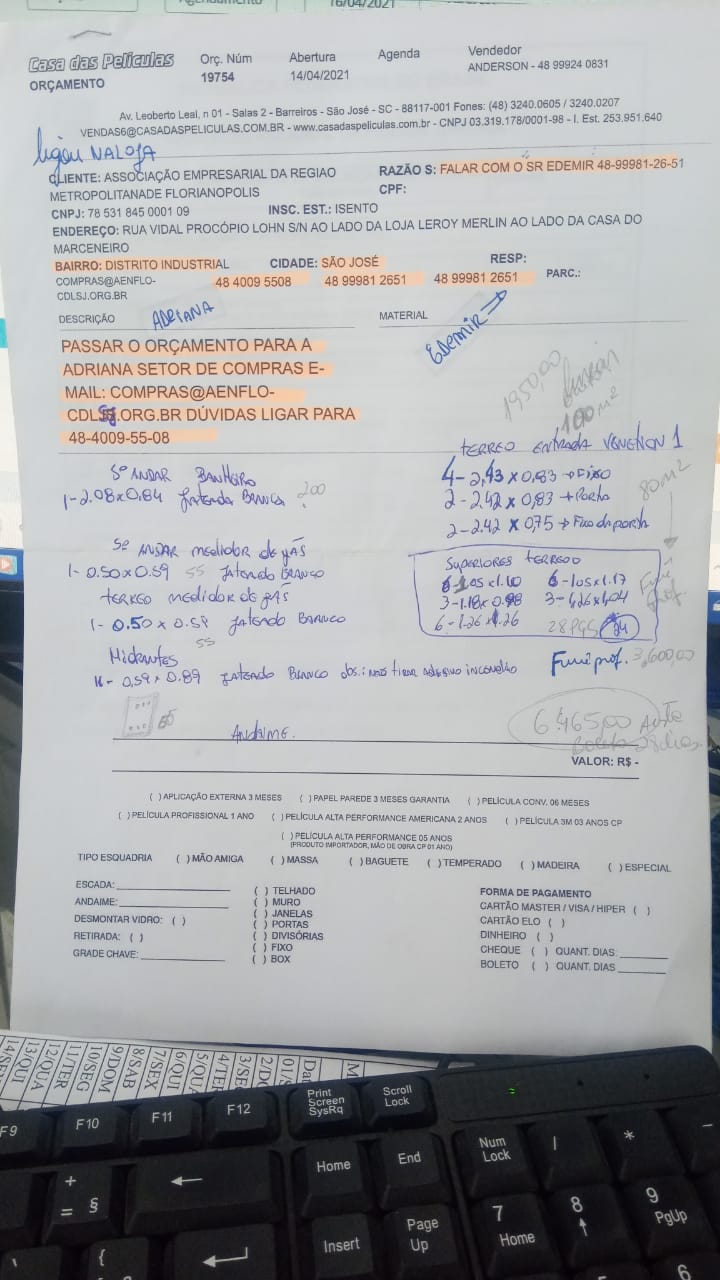 16/04/2021
Casa das Películas
ORÇAMENTO
Orç. Núm
19754
Abertura
14/04/2021
Agenda
Vendedor
ANDERSON - 48 99924 0831
Av. Leoberto Leal, n 01 - Salas 2 - Barreiros - São José - SC - 88117-001 Fones: (48) 3240.0605 / 3240.0207
VENDAS6@CASADASPELICULAS.COM.BR - www.casadaspeliculas.com.br - CNPJ 03.319.178/0001-98 - I. Est. 253.951.640
ligou NA LOJA
CLIENTE: ASSOCIAÇÃO EMPRESARIAL DA REGIAO
METROPOLITANADE FLORIANOPOLIS
RAZÃO S: FALAR COM O SR EDEMIR 48-99981-26-51
CPF:
CNPJ: 78 531 845 0001 09 INSC. EST.: ISENTO
ENDEREÇO: RUA VIDAL PROCÓPIO LOHN S/N AO LADO DA LOJA LEROY MERLIN AO LADO DA CASA DO
MARCENEIRO
BAIRRO: DISTRITO INDUSTRIAL CIDADE: SÃO JOSÉ RESP:
COMPRAS@AENFLO-
CDLSJ.ORG.BR
48 4009 5508 48 99981 2651 48 99981 2651 PARC.:
DESCRIÇÃO ADRIANA
MATERIAL
Edemir
PASSAR O ORÇAMENTO PARA A
ADRIANA SETOR DE COMPRAS E-
MAIL: COMPRAS@AENFLO-
CDLSJ.ORG.BR DÚVIDAS LIGAR PARA
48-4009-55-08
1950,00
100m²
TERREO ENTRADA
4 - 2,43 x 0,83 → Fixo
2 - 2,42 x 0,83 → Porta
2 - 2.42 x 0,75 → Fixo da porta
80m²
5º ANDAR BANHEIRO
1 - 2.08 x 0.84 Jateado BRANCA 200
5º ANDAR medidor de gás
1 - 0.50 x 0.59 55 Jateado BRANCO
TERREO medidor de gás
1 - 0.50 x 0.59 Jateado BRANCO
55
Hidrantes
0,59 x 0.89 Jateado BRANCO obs.: não tirar adesivo incendio
SUPERIORES TERREO
6 - 1.05 x 1.10 6 - 1.05 x 1.17
3 - 1.18 x 0.98 3 - 1,26 x 1,04
6 - 1.26 x 1.26 28 PÇS 24
Fumê prof.
Fumê prof. 3,600,00
ANDAIME.
6.465,00
Boleto 28 dias
VALOR: R$ -
( ) APLICAÇÃO EXTERNA 3 MESES ( ) PAPEL PAREDE 3 MESES GARANTIA ( ) PELÍCULA CONV. 06 MESES
( ) PELÍCULA PROFISSIONAL 1 ANO ( ) PELÍCULA ALTA PERFORMANCE AMERICANA 2 ANOS ( ) PELÍCULA 3M 03 ANOS CP
( ) PELÍCULA ALTA PERFORMANCE 05 ANOS
(PRODUTO IMPORTADOR, MÃO DE OBRA CP 01 ANO)
TIPO ESQUADRIA ( ) MÃO AMIGA ( ) MASSA ( ) BAGUETE ( ) TEMPERADO ( ) MADEIRA ( ) ESPECIAL
ESCADA:
ANDAIME:
DESMONTAR VIDRO: ( )
RETIRADA: ( )
GRADE CHAVE:
( ) TELHADO
( ) MURO
( ) JANELAS
( ) PORTAS
( ) DIVISÓRIAS
( ) FIXO
( ) BOX
FORMA DE PAGAMENTO
CARTÃO MASTER / VISA / HIPER ( )
CARTÃO ELO ( )
DINHEIRO ( )
CHEQUE ( ) QUANT. DIAS:
BOLETO ( ) QUANT. DIAS
13/QUI
12/QUA
11/TER
10/SEG
9/DOM
8/SAB
7/SEX
6/QUI
5/QUA
4/TER
3/SEG
F9
F10
F11
F12
Print
Screen
SysRq
Scroll
Lock
Home
End
Insert
Page
Up
Num
Lock
/
*
-
7
Home
8
9
PgUp
6
+
=
§
{